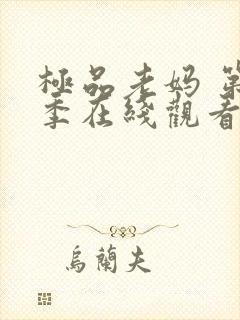 極品老妈 第
季在綫觀看
烏蘭夫